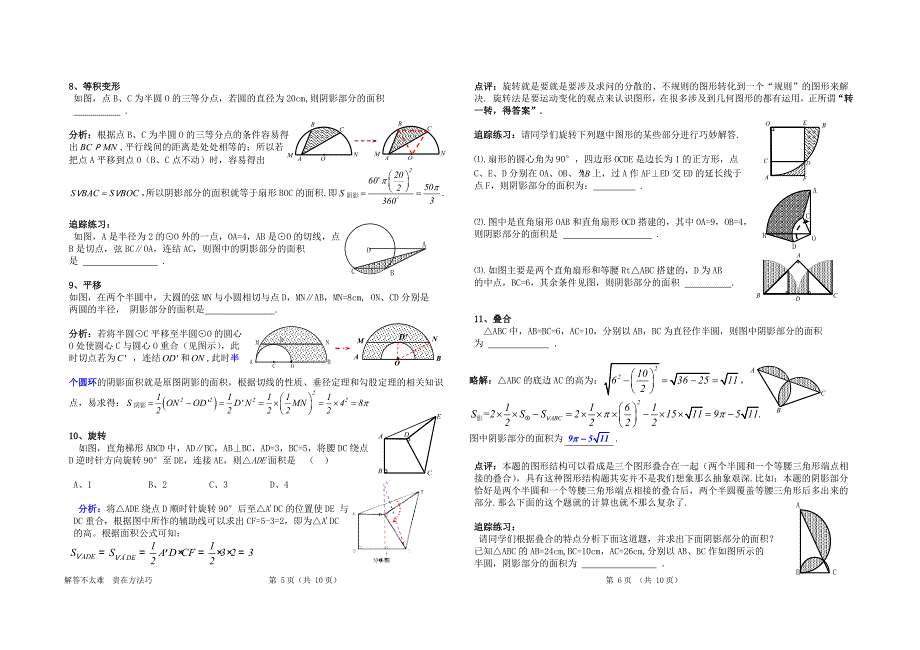 8、等积变形
如图, 点 B、C 为半圆 O 的三等分点, 若圆的直径为 20cm,则阴影部分的面积
________ .
分析: 根据点 B、C 为半圆 O 的三等分点的条件容易得
出 BC ∥ MN , 平行线间的距离是处处相等的; 所以若
把点 A 平移到点 O（B、C 点不动）时, 容易得出
S∨BAC = S∨BOC ,所以阴影部分的面积就等于扇形 BOC 的面积. 即 S阴影 = 60°π(20/2)²/360° = 50π/3 .
追踪练习:
如图, A 是半径为 2 的⊙O 外的一点, OA=4, AB 是⊙O 的切线, 点
B 是切点, 弦 BC∥OA, 连结 AC, 则图中的阴影部分的面积
是 ________ .
9、平移
如图, 在两个半圆中, 大圆的弦 MN 与小圆相切与点 D, MN∥AB, MN=8cm, ON、CD 分别是
两圆的半径, 阴影部分的面积是________.
分析: 若将半圆⊙C 平移至半圆⊙O 的圆心
O 处使圆心 C 与圆心 O 重合（见图示）, 此
时切点若为 C' , 连结 OD' 和 ON , 此时半
个圆环的阴影面积就是原图阴影的面积, 根据切线的性质、垂径定理和勾股定理的相关知识
点, 易求得: S阴影 = 1/2(ON² − OD'²) = 1/2 D'N² = 1/2 × (1/2 MN)² = 1/2 × 4² = 8π
10、旋转
如图, 直角梯形 ABCD 中, AD∥BC, AB⊥BC, AD=3, BC=5, 将腰 DC 绕点
D 逆时针方向旋转 90°至 DE, 连接 AE, 则△ADE 面积是 （ ）
A、1 B、2 C、3 D、4
分析: 将△ADE 绕点 D 顺时针旋转 90°后至△A'DC 的位置使 DE 与
DC 重合, 根据图中所作的辅助线可以求出 CF=5-3=2, 即为△A'DC
的高。根据面积公式可知;
S∨ADE = S∨A'DE = 1/2 A'D×CF = 1/2×3×2 = 3
解答不太难 贵在方法巧 第 5 页（共 10 页）
点评: 旋转就是要就是要涉及求问的分散的、不规则的图形转化到一个“规则”的图形来解
决. 旋转法是要运动变化的观点来认识图形, 在很多涉及到几何图形的都有运用, 正所谓“转
一转, 得答案”.
追踪练习: 请同学们旋转下列题中图形的某些部分进行巧妙解答.
⑴.扇形的圆心角为 90°, 四边形 OCDE 是边长为 1 的正方形, 点
C、E、D 分别在 OA、OB、AB 上, 过 A 作 AF⊥ED 交 ED 的延长线于
点 F, 则阴影部分的面积为: ________ .
⑵.图中是直角扇形 OAB 和直角扇形 OCD 搭建的, 其中 OA=9, OB=4,
则阴影部分的面积是 ________ .
⑶.如图主要是两个直角扇形和等腰 Rt△ABC 搭建的, D 为 AB
的中点, BC=6, 其余条件见图, 则阴影部分的面积 ________ .
11、叠合
△ABC 中, AB=BC=6, AC=10, 分别以 AB, BC 为直径作半圆, 则图中阴影部分的面积
为 ________ .
略解: △ABC 的底边 AC 的高为: √(6² − (10/2)²) = √(36−25) = √11 ,
S影 = 2×1/2×S⊕ − S∨ABC = 2×1/2×π×(6/2)² − 1/2×15×√11 = 9π − 5√11.
图中阴影部分的面积为 9π−5√11 .
点评: 本题的图形结构可以看成是三个图形叠合在一起（两个半圆和一个等腰三角形端点相
接的叠合）, 具有这种图形结构题其实并不是我们想象那么抽象艰深. 比如: 本题的阴影部分
恰好是两个半圆和一个等腰三角形端点相接的叠合后, 两个半圆覆盖等腰三角形后多出来的
部分. 那么下面的这个题就的计算也就不那么复杂了.
追踪练习:
请同学们根据叠合的特点分析下面这道题, 并求出下面阴影部分的面积?
已知△ABC 的 AB=24cm, BC=10cm, AC=26cm,分别以 AB、BC 作如图所示的
半圆, 阴影部分的面积为 ________ .
第 6 页 （共 10 页）